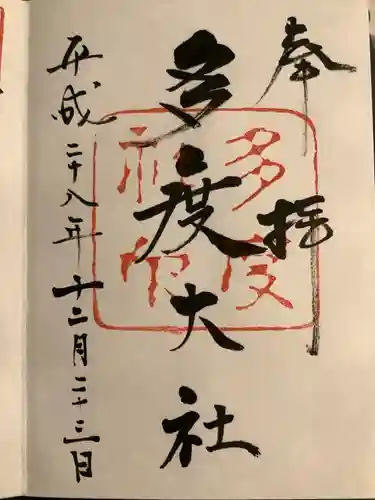 奉拝
多度大社
多度
神印
平成二十八年十二月二十三日